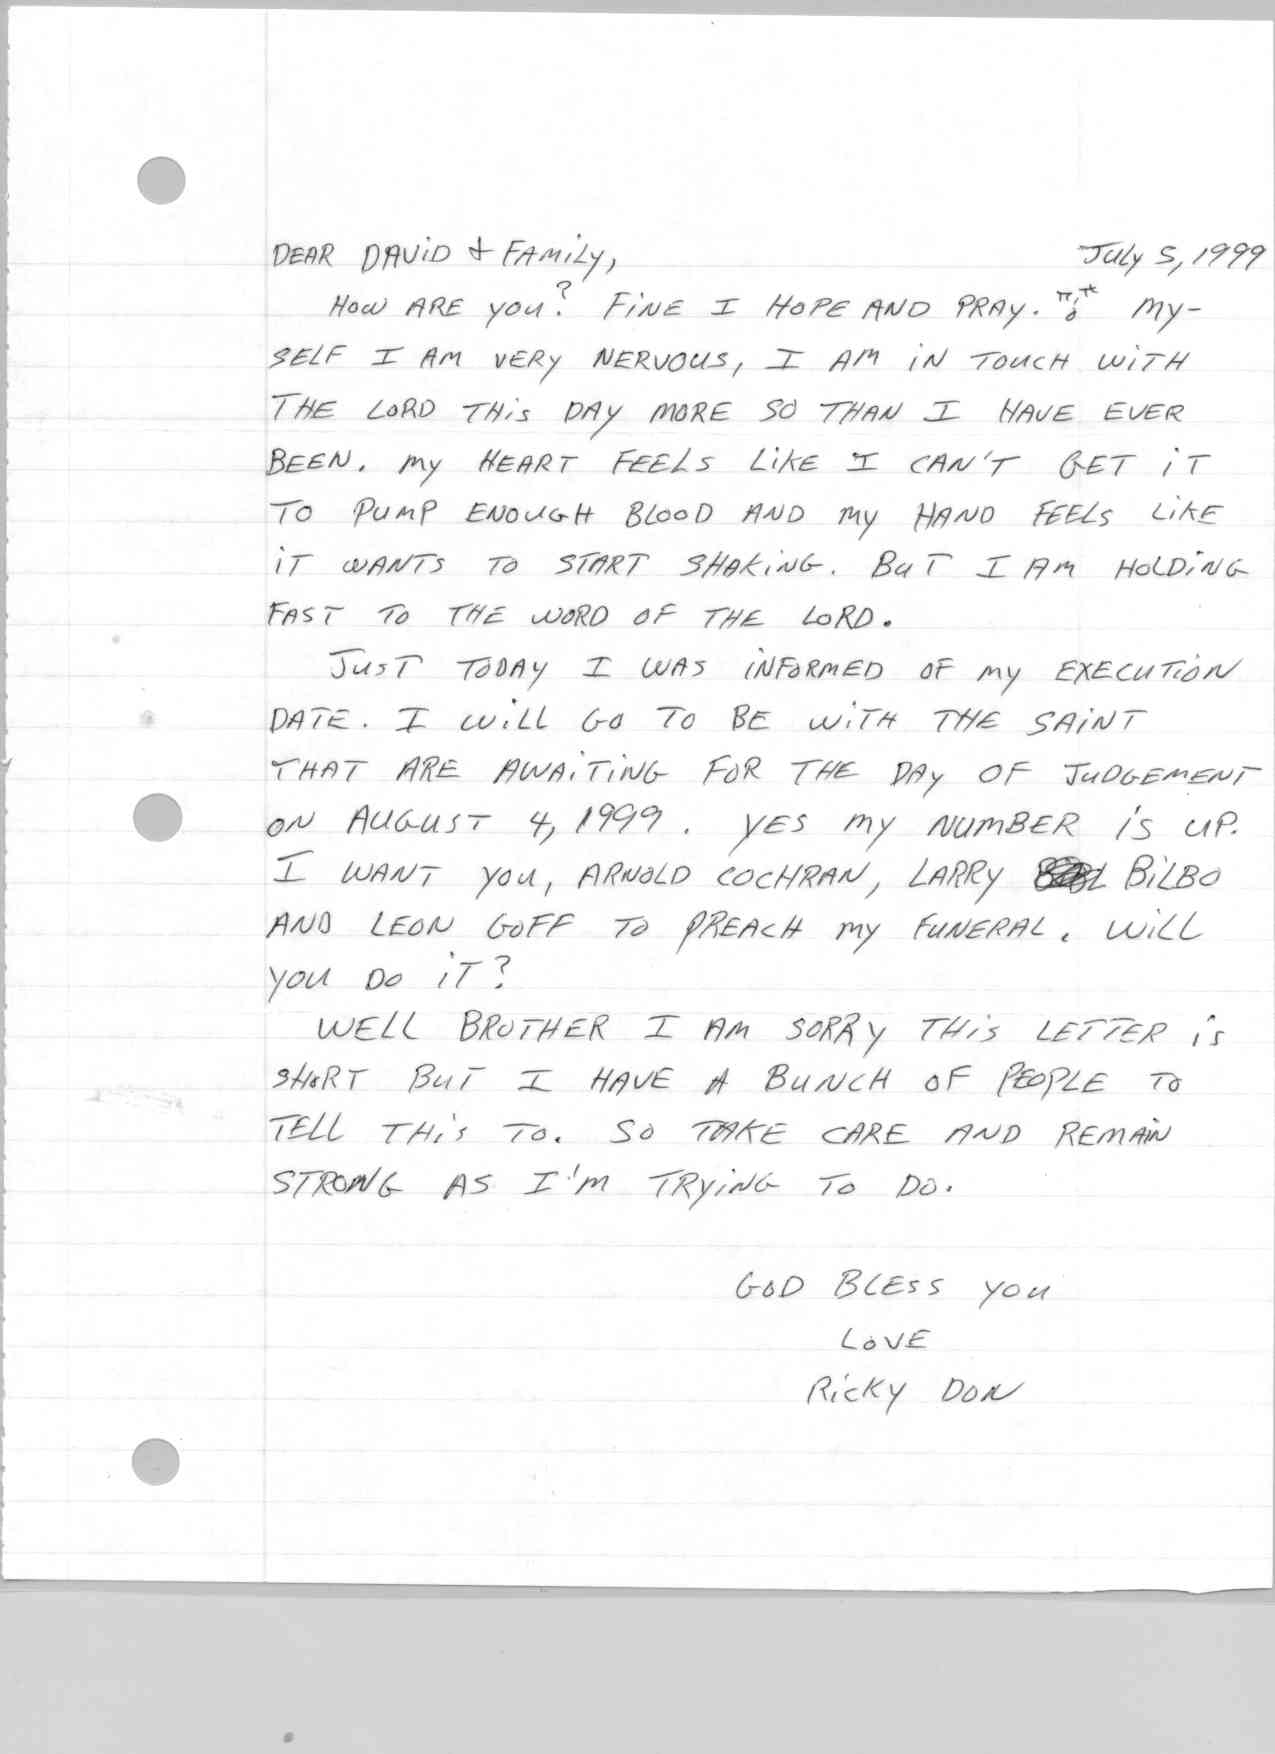 DEAR DAVID & FAMILY, JULY 5, 1999
HOW ARE YOU? FINE I HOPE AND PRAY. MY-
SELF I AM VERY NERVOUS, I AM IN TOUCH WITH
THE LORD THIS DAY MORE SO THAN I HAVE EVER
BEEN. MY HEART FEELS LIKE I CAN'T GET IT
TO PUMP ENOUGH BLOOD AND MY HAND FEELS LIKE
IT WANTS TO START SHAKING. BUT I AM HOLDING
FAST TO THE WORD OF THE LORD.
JUST TODAY I WAS INFORMED OF MY EXECUTION
DATE. I WILL GO TO BE WITH THE SAINT
THAT ARE AWAITING FOR THE DAY OF JUDGEMENT
ON AUGUST 4, 1999. YES MY NUMBER IS UP.
I WANT YOU, ARNOLD COCHRAN, LARRY BILBO
AND LEON GOFF TO PREACH MY FUNERAL. WILL
YOU DO IT?
WELL BROTHER I AM SORRY THIS LETTER IS
SHORT BUT I HAVE A BUNCH OF PEOPLE TO
TELL THIS TO. SO TAKE CARE AND REMAIN
STRONG AS I'M TRYING TO DO.
GOD BLESS YOU
LOVE
RICKY DON